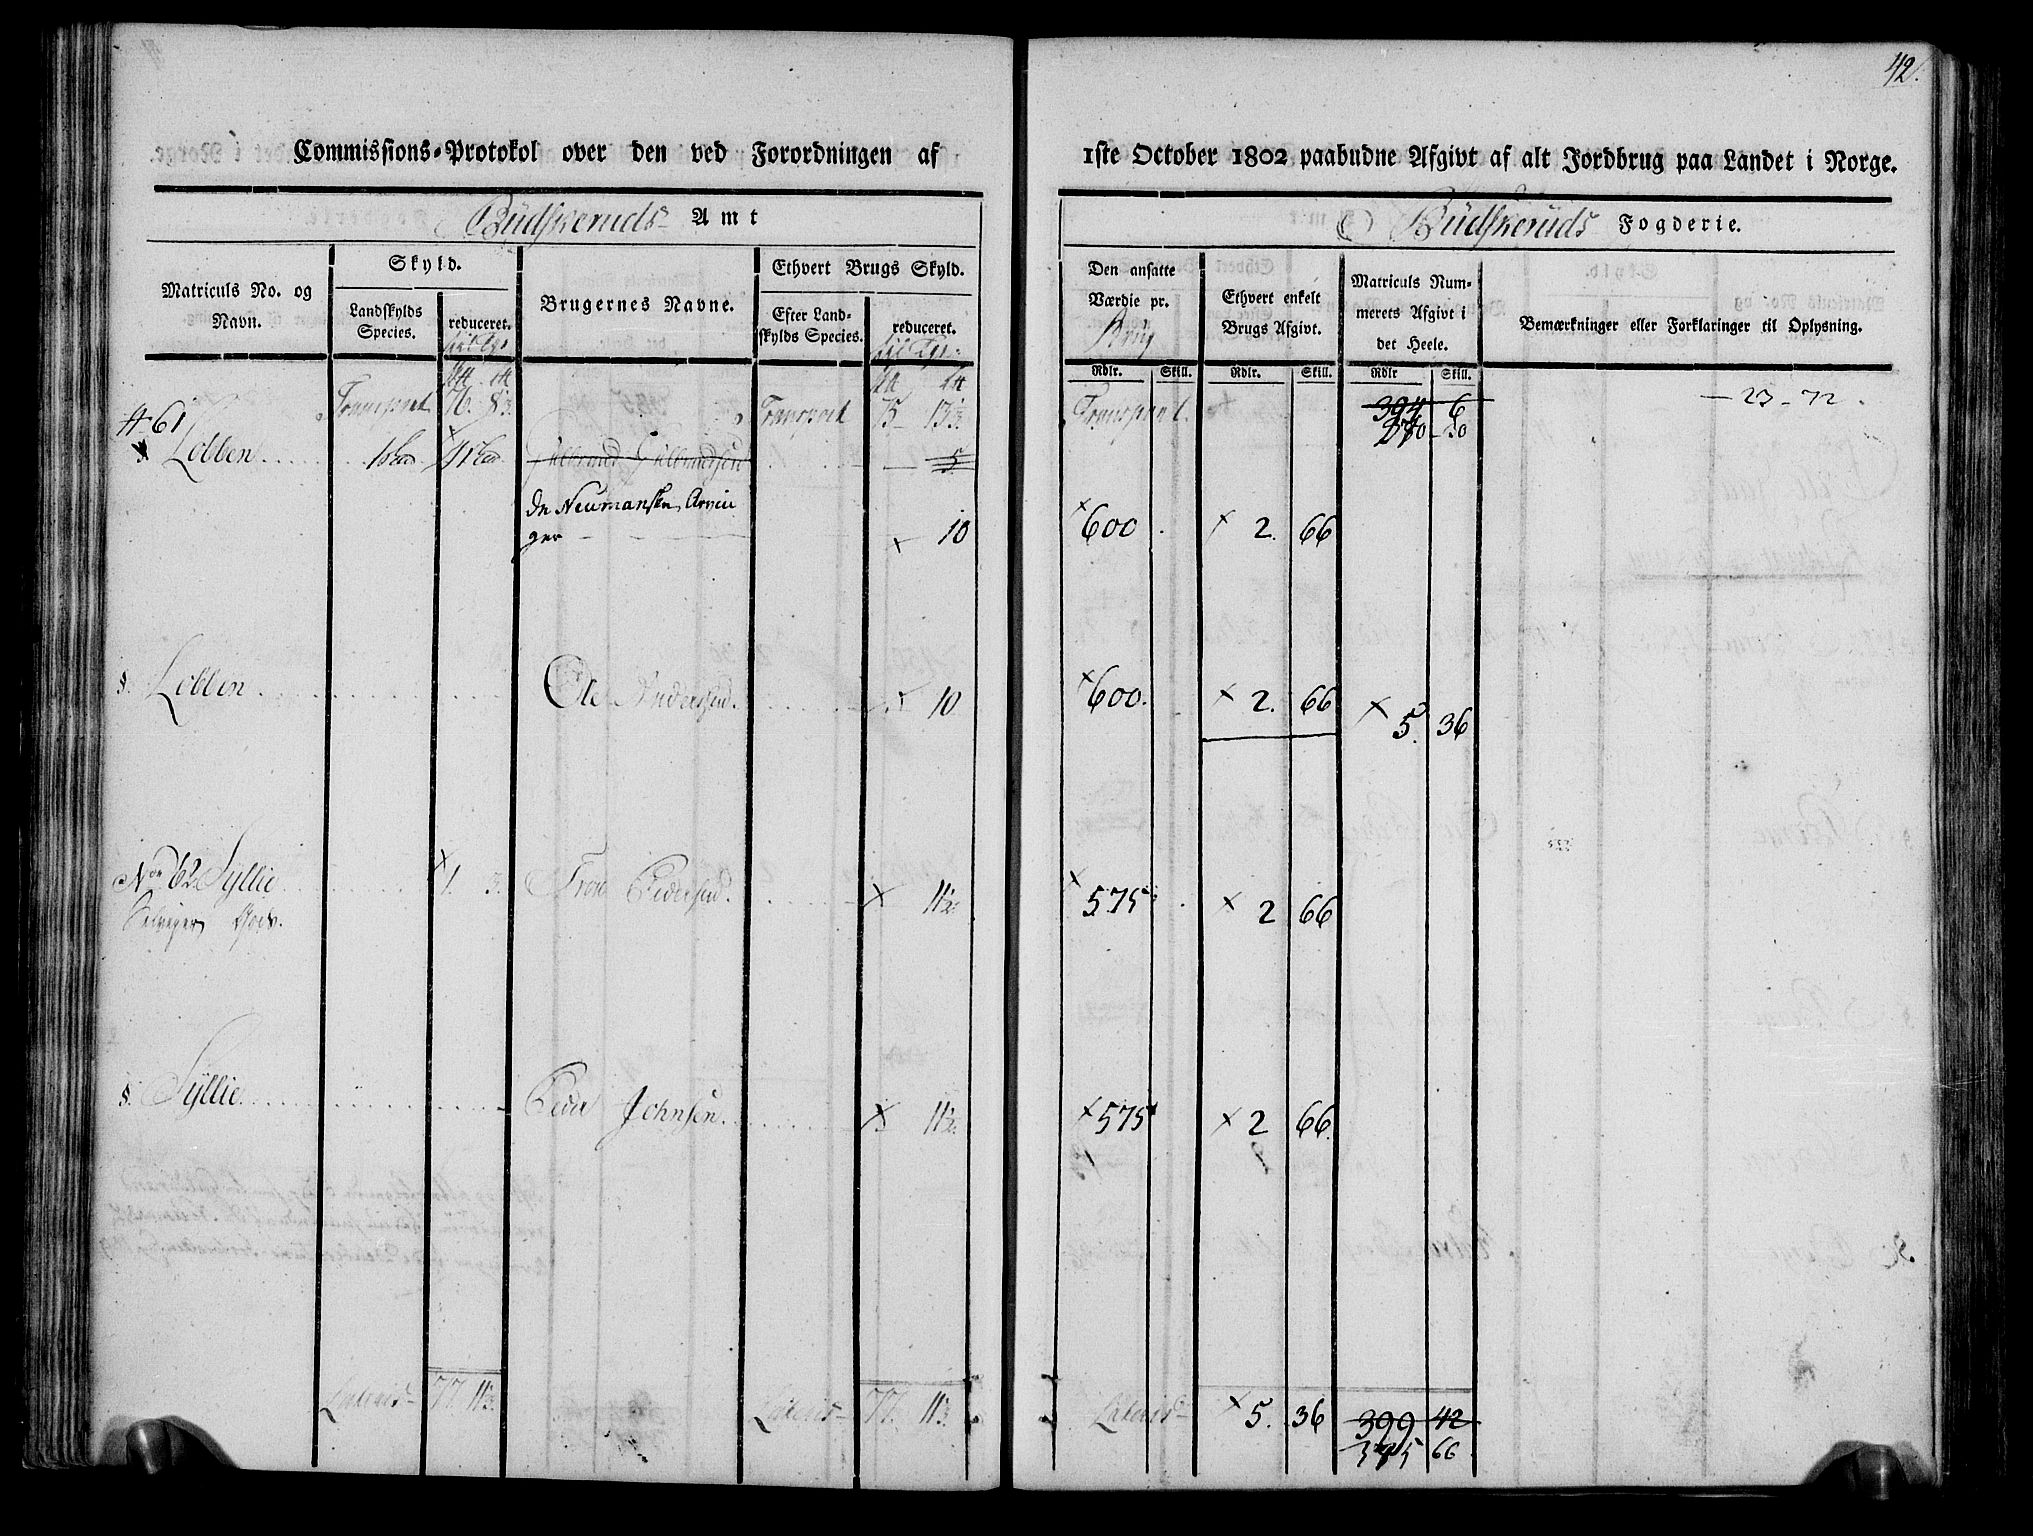 42.
Commissions-Protokol over den ved Forordningen af 1ste October 1802 paabudne Afgivt af alt Jordbrug paa Landet i Norge.
Budskeruds Amt
Budskeruds Fogderie.
Matriculs No. og Navn.
Skyld.
Landskylds Species.
reduceret.
Brugernes Navne.
Ethvert Brugs Skyld.
Efter Landskylds Species.
reduceret.
Den ansatte Værdie pr. Brug
Ethvert enkelt Brugs Afgivt.
Matriculs Nummerets Afgivt i det Heele.
Bemærkninger eller Forklaringer til Oplysning.
Rdlr. Skill. Rdlr. Skill. Rdlr Skill.
Transport 76. Transport 75 Transport. 394 6 — 23 - 72.
# 61 Lobben
5
de Neumanske Arvin
ger 10 600 2. 66
§. Lobben Ole Andersen. 10 600. 2. 66 5. 36
No 62 Syllie 1. 3. Pedersen. 11½ 575 2 66
§. Syllie Peder Johnsen. 11½ 575 2 66.
Lateris 77. Lateris 77. Lateris 5. 36 399 42
395 66